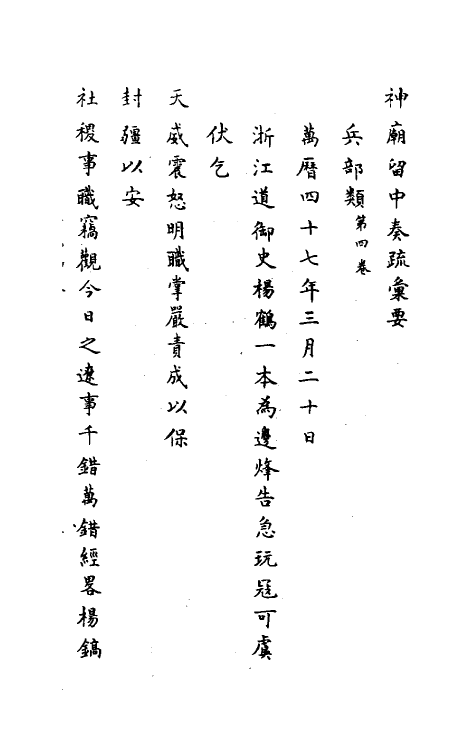 神廟留中奏疏彙要
兵部類第四卷
萬曆四十七年三月二十日
浙江道御史楊鶴一本為邊烽告急玩寇可虞
伏乞
天威震怒明職掌嚴責成以保
封疆以安
社稷事職竊觀今日之遼事千錯萬錯經畧楊鎬